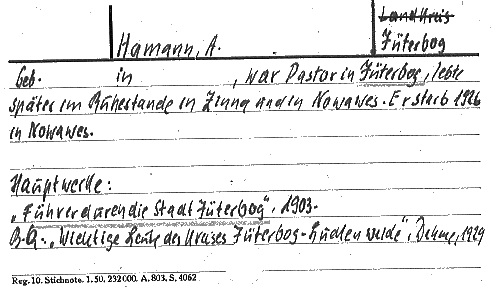 Landkreis
Hamann, A. Jüterbog
Geb. in , war Pastor in Jüterbog, lebte
später im Ruhestande in Zinna und in Nowawes. Er starb 1926
in Nowawes.
Hauptwerke:
„Führer durch die Stadt Jüterbog", 1903.
B.Q. „Wichtige Leute des Kreises Jüterbog-Luckenwalde", Dahme, 1929
Reg. 10. Stichnote. 1. 50. 232000. A. 803. S. 4062